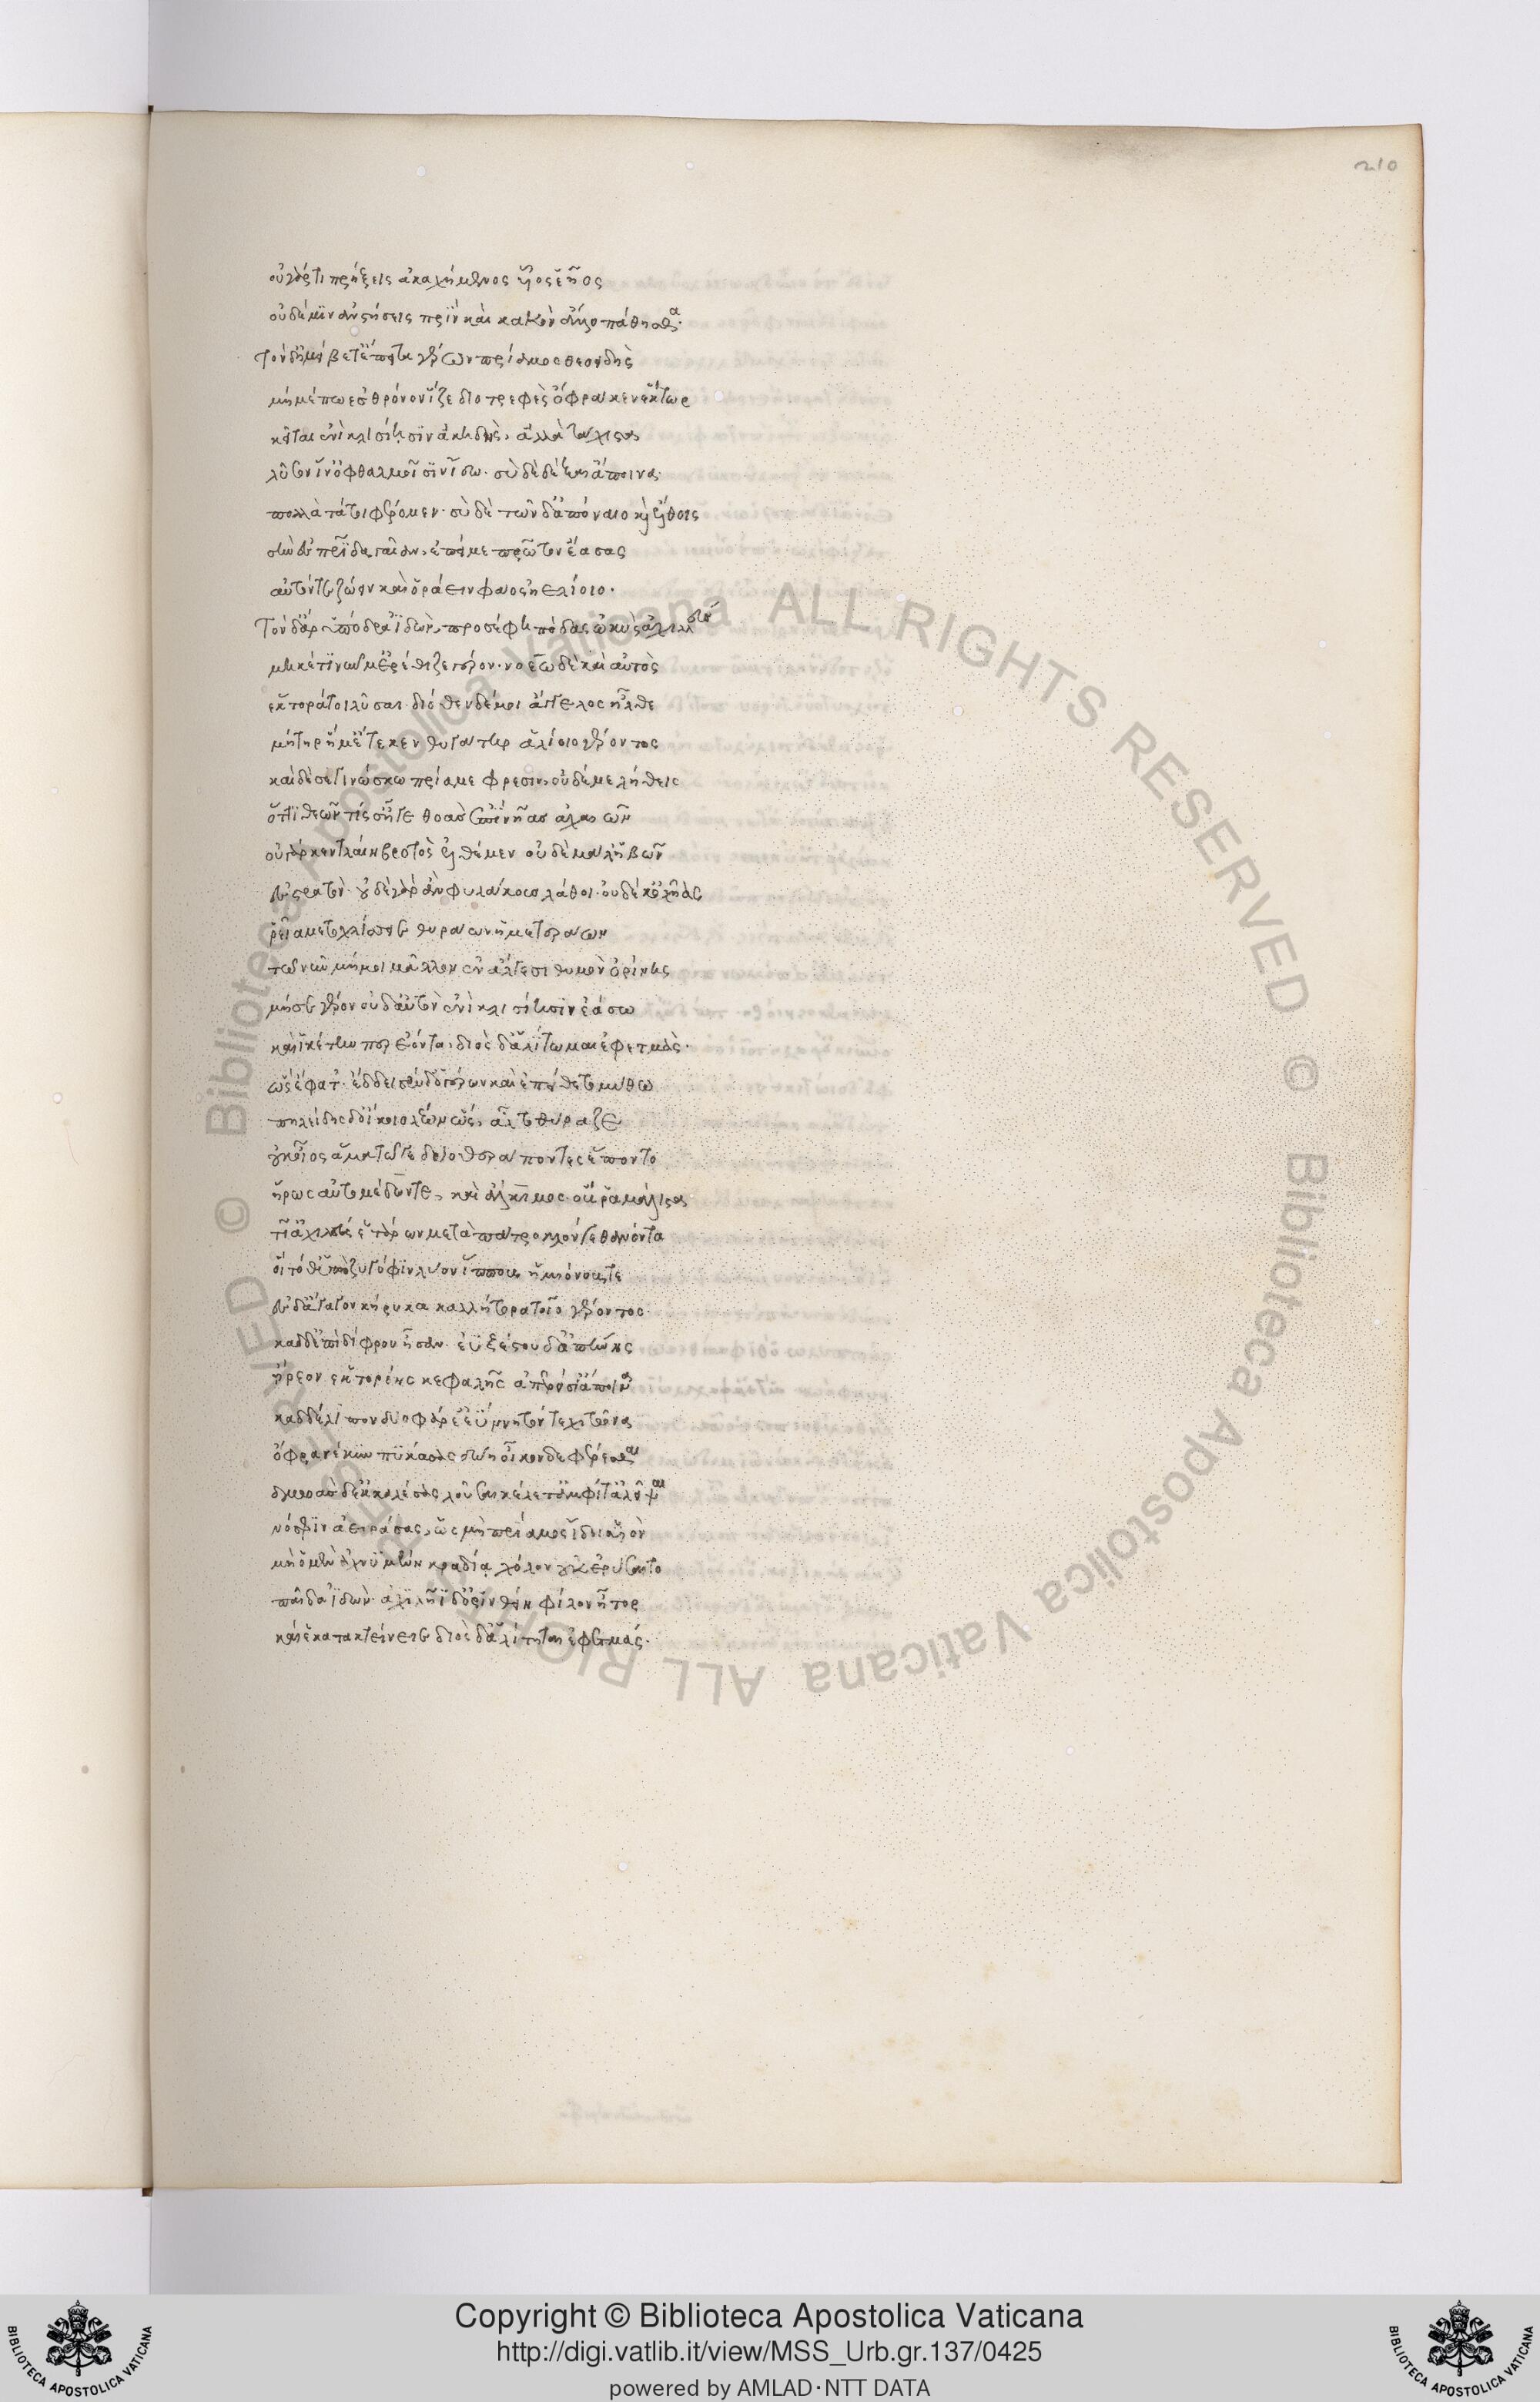 210
οὐ γάρ τι πρήξεις ἀκαχήμενος υἷος ἑῆος
οὐδέ μιν ἀνστήσεις πρὶν καὶ κακὸν ἄλλο πάθησθα.
Τὸν δ' ἠμείβετ' ἔπειτα γέρων πρίαμος θεοειδὴς
μή μέ πω ἐς θρόνον ἵζε διοτρεφὲς ὄφρα κεν ἕκτωρ
κεῖται ἐνὶ κλισίησιν ἀκηδὴς, ἀλλὰ τάχιστα
λῦσον ἵν' ὀφθαλμοῖσιν ἴδω· σὺ δὲ δέξαι ἄποινα
πολλὰ τά τοι φέρομεν· σὺ δὲ τῶνδ' ἀπόναιο καὶ ἔλθοις
σὴν ἐς πατρίδα γαῖαν, ἐπεί με πρῶτον ἔασας
αὐτόν τε ζώειν καὶ ὁρᾶειν φάος ἠελίοιο.
Τὸν δ' ἄρ' ὑπόδρα ἰδὼν, προσέφη πόδας ὠκὺς ἀχιλλεύς
μηκέτι νῦν μ' ἐρέθιζε γέρον· νοέω δὲ καὶ αὐτὸς
ἕκτορά τοι λῦσαι· διόθεν δέ μοι ἄγγελος ἦλθε
μήτηρ ἥ μ' ἔτεκεν θυγάτηρ ἁλίοιο γέροντος
καὶ δὲ σὲ γινώσκω πρίαμε φρεσιν, οὐδέ με λήθεις
ὅττι θεῶν τίς σ' ἦγε θοὰς ἐπὶ νῆας ἀχαιῶν
οὐ γάρ κεν τλαίη βροτὸς ἐλθέμεν οὐδὲ μάλ' ἡβῶν
ἐς στρατὸν· οὐδὲ γὰρ ἂν φυλάκους λάθοι· οὐδέ κ' ὀχῆας
ῥεῖα μετοχλίσσειε θυράων ἡμετεράων
τῶ νῦν μή μοι μᾶλλον ἐν ἄλγεσι θυμὸν ὀρίνης
μή σε γέρον οὐδ' αὐτὸν ἐνὶ κλισίησιν ἐάσω
καὶ ἱκέτην περ ἐόντα, διὸς δ' ἀλίτωμαι ἐφετμὰς.
ὣς ἔφατ'· ἔδδεισεν δ' ὁ γέρων καὶ ἐπείθετο μύθω
πηλείδης δ' οἴκοιο λέων ὣς, ἆλτο θύραζε
οὐκ οἶος ἅμα τῶ γε δύο θεράποντες ἕποντο
ἥρως αὐτομέδων τε, καὶ ἄλκιμος· οὕς ῥα μάλιστα
τῖ' ἀχιλεὺς ἑτάρων μετὰ πάτροκλόν γε θανόντα
οἵ τόθ' ὑπὸ ζυγόφιν λύον ἵππους ἡμιόνους τε
ἐς δ' ἄγαγον κήρυκα καλήτορα τοῖο γέροντος·
καδδ' ἐπὶ δίφρου εἷσαν· ἐϋξέστου δ' ἀπ' ἀπήνης
ᾕρεον ἑκτορέης κεφαλῆς ἀπερείσι' ἄποινα
καδδ' ἔλιπον δύο φάρε' ἐΰννητόν τε χιτῶνα
ὄφρα νέκυν πυκάσας δώη οἶκονδε φέρεσθαι
δμωὰς δ' ἐκκαλέσας λοῦσαι κέλετ' ἀμφί τ' ἀλεῖψαι
νόσφιν ἀειράσας, ὡς μὴ πρίαμος ἴδοι υἱὸν
μὴ ὁ μὲν ἀχνυμένη κραδίᾳ χόλον οὐκ ἐρύσαιτο
παῖδα ἰδὼν· ἀχιλῆϊ δ' ὀρινθείη φίλον ἦτορ
καί ἑ κατακτείνειε διὸς δ' ἀλίτηται ἐφετμάς·